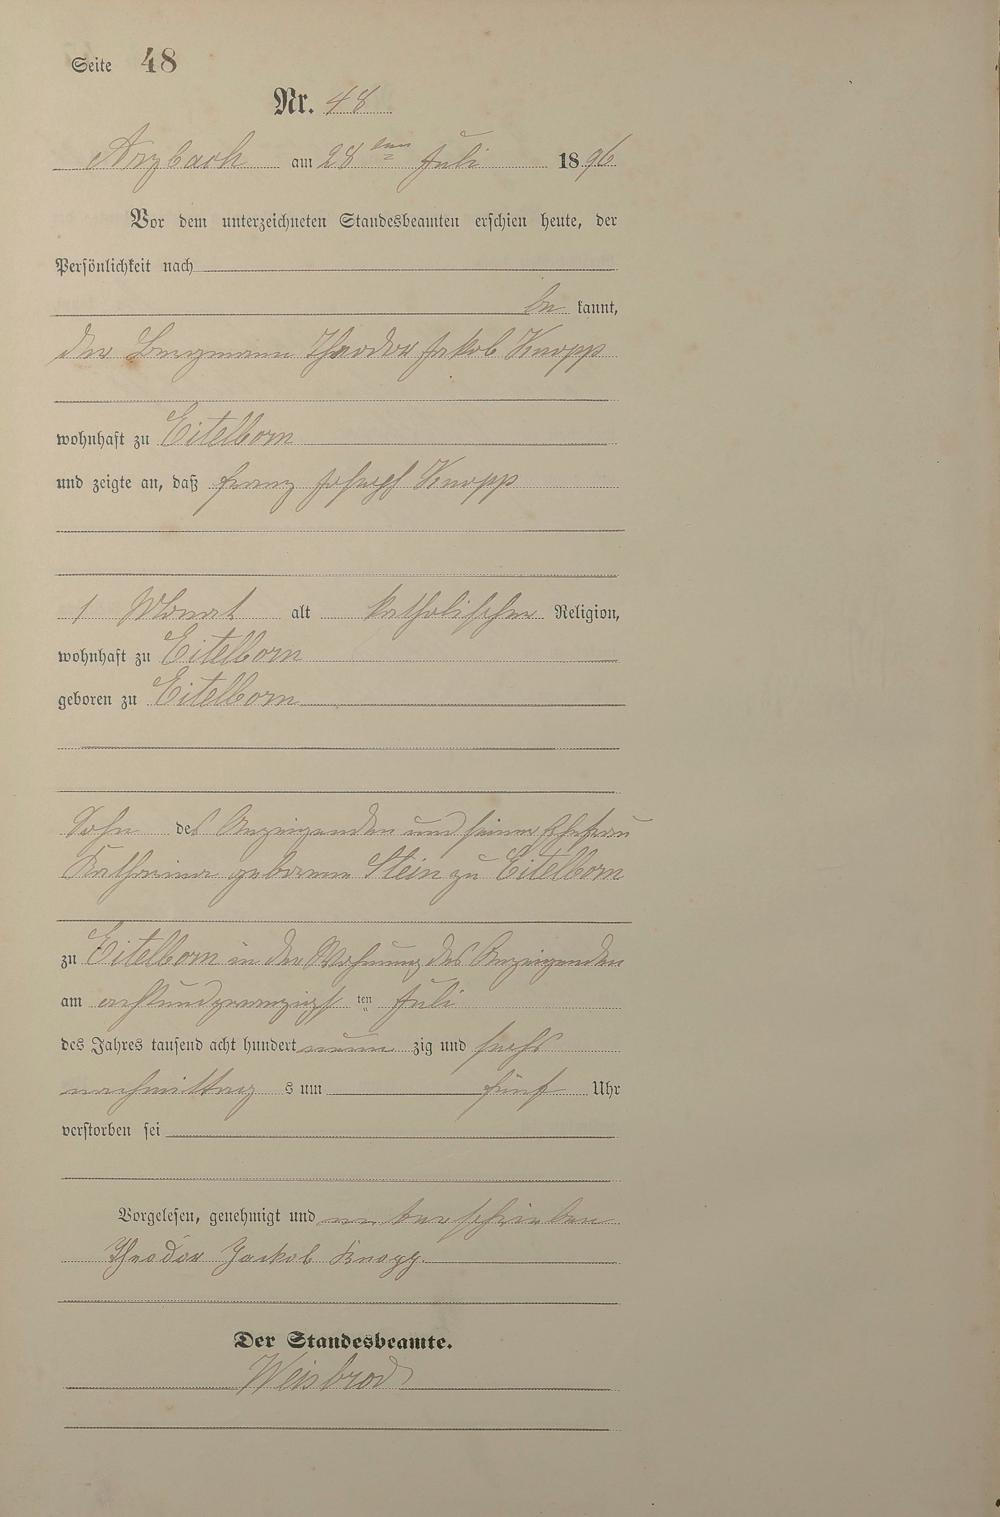 Seite 48
Nr. 48
Arzbach am 28 ten Juli 1896
Vor dem unterzeichneten Standesbeamten erschien heute, der
Persönlichkeit nach
be kannt,
der Bergmann Theodor Jakob Knopp
wohnhaft zu Eitelborn
und zeigte an, daß Franz Joseph Knopp
1 Monat alt katholischer Religion,
wohnhaft zu Eitelborn
geboren zu Eitelborn
Sohn des Anzeigenden und seiner Ehefrau
Katharina geborene Stein zu Eitelborn
zu Eitelborn in der Wohnung des Anzeigenden
am achtundzwanzigs ten Juli
des Jahres tausend acht hundert neun zig und sechs
nachmittag s um fünf Uhr
verstorben sei
Vorgelesen, genehmigt und unterschrieben
Theodor Jackob Knopp
Der Standesbeamte.
Weisbrod